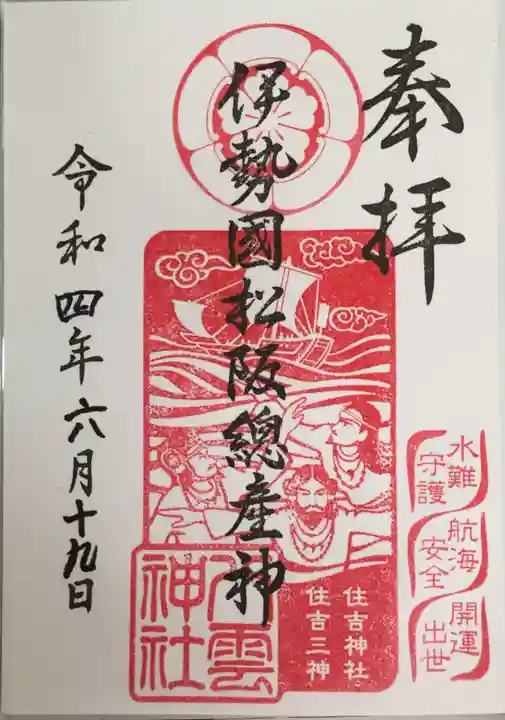 奉拝
水難
守護
航海
安全
開運
出世
伊勢國松阪總産神
住吉神社
住吉三神
八雲
神社
令和四年六月十九日